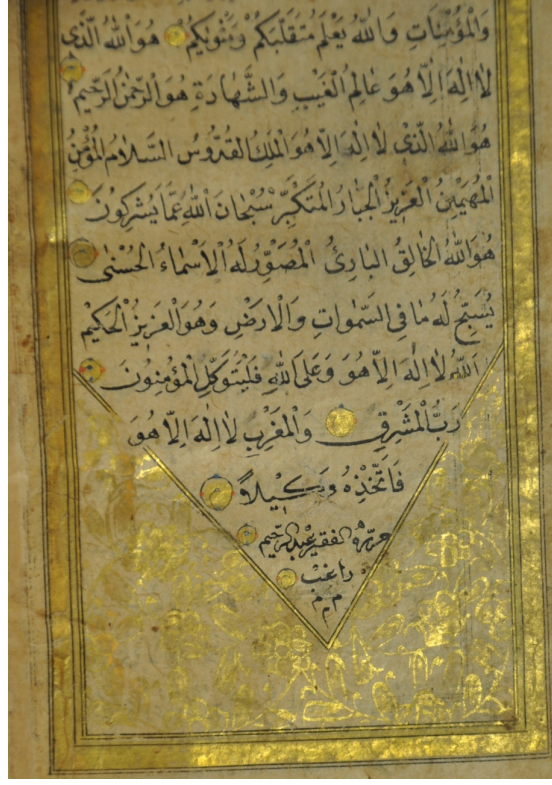 وَالْمُؤْمِنَاتِ وَاللّٰهُ يَعْلَمُ مُتَقَلَّبَكُمْ وَمَثْوٰيكُمْ هُوَ اللّٰهُ الَّذِى
لَا اِلٰهَ اِلَّا هُوَ عَالِمُ الْغَيْبِ وَالشَّهَادَةِ هُوَ الرَّحْمٰنُ الرَّحِيمُ
هُوَ اللّٰهُ الَّذِى لَا اِلٰهَ اِلَّا هُوَ الْمَلِكُ الْقُدُّوسُ السَّلَامُ الْمُؤْمِنُ
الْمُهَيْمِنُ الْعَزِيزُ الْجَبَّارُ الْمُتَكَبِّرُ سُبْحَانَ اللّٰهِ عَمَّا يُشْرِكُونَ
هُوَ اللّٰهُ الْخَالِقُ الْبَارِئُ الْمُصَوِّرُ لَهُ الْاَسْمَاءُ الْحُسْنٰى
يُسَبِّحُ لَهُ مَا فِى السَّمٰوَاتِ وَالْاَرْضِ وَهُوَ الْعَزِيزُ الْحَكِيمُ
اَللّٰهُ لَا اِلٰهَ اِلَّا هُوَ وَعَلَى اللّٰهِ فَلْيَتَوَكَّلِ الْمُؤْمِنُونَ
رَبُّ الْمَشْرِقِ وَالْمَغْرِبِ لَا اِلٰهَ اِلَّا هُوَ
فَاتَّخِذْهُ وَكِيلًا
حرّره الفقير عبد الرحيم
راغب
م م م